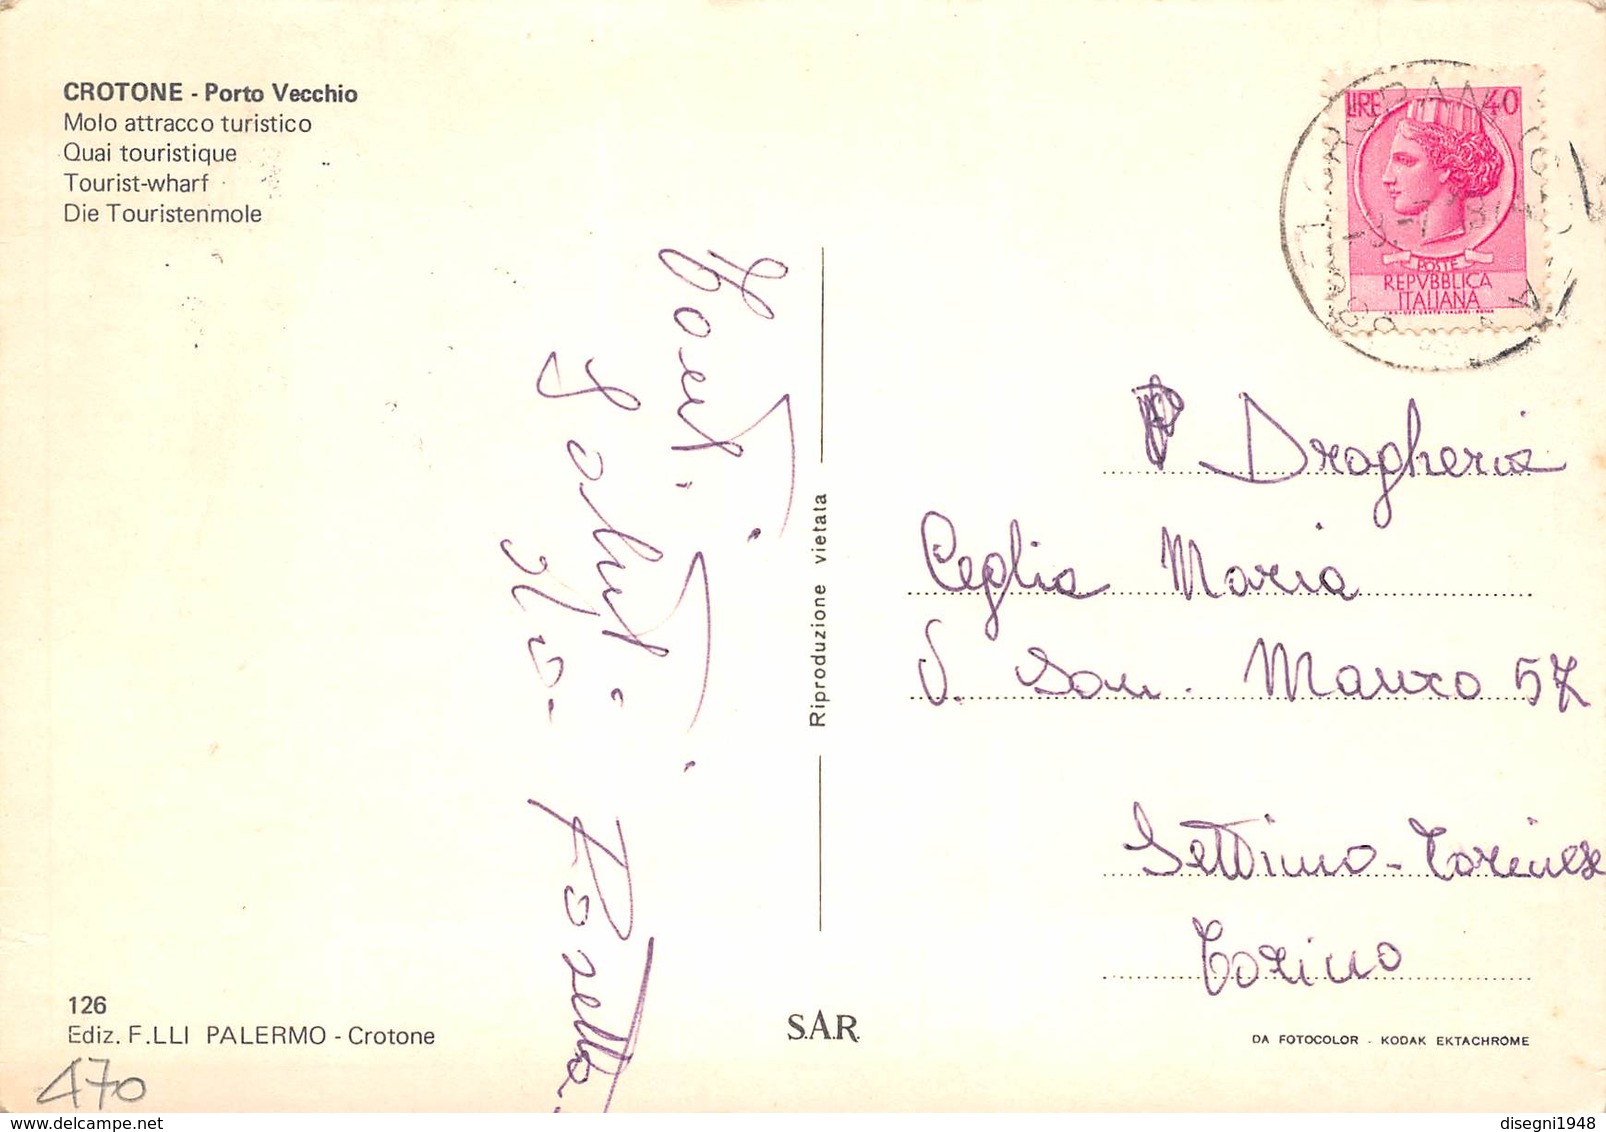 CROTONE - Porto Vecchio
Molo attracco turistico
Quai touristique
Tourist-wharf
Die Touristenmole
LIRE 40
POSTE
REPVBBLICA
ITALIANA
Tanti.
Saluti
Rosetta
Riproduzione vietata
Drogheria
Ceglia Maria
V. San. Mauro 57
Settimo-Torinese
Torino
126
Ediz. F.LLI PALERMO - Crotone
S.A.R.
DA FOTOCOLOR - KODAK EKTACHROME
470
disegni1948